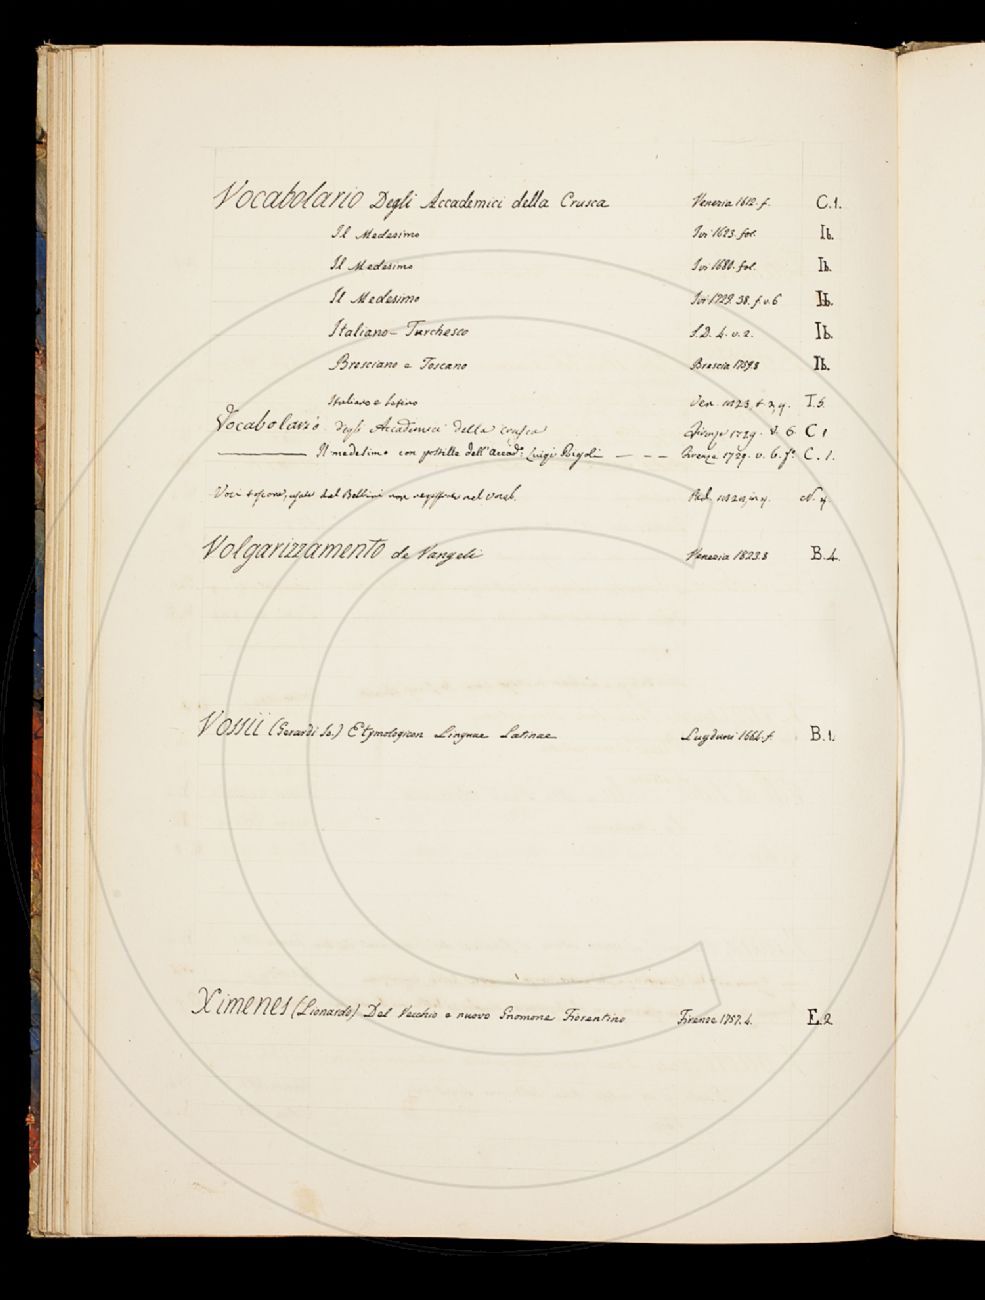 Vocabolario Degli Accademici della Crusca Venezia 1612. f. C.1.
Il Medesimo Ivi 1623. fol. Ib.
Il Medesimo Ivi 1680. fol. Ib.
Il Medesimo Ivi 1729. 38. f. v. 6 Ib.
Italiano - Turchesco S.D. 4. v. 2. Ib.
Bresciano e Toscano Brescia 1759.8 Ib.
Italiano e Latino Ven. T. 5.
Vocabolario degli Accademici della Crusca Firenze 1729. V. 6. C 1
Il medesimo con postille dell' Accad.º Luigi Rigoli - - - Firenze 1729. v. 6. fº C. 1.
Voci usate dal Bellini non registrate nel vocab. N. 4.
Volgarizzamento de Vangeli Venezia 1823.8 B.4.
Vossii (Gerardi Jo.) Etymologicon Linguae Latinae Lugduni 1664. f. B.1.
Ximenes (Lionardo) Del Vecchio e nuovo Gnomone Fiorentino Firenze 1757. 4. E.2